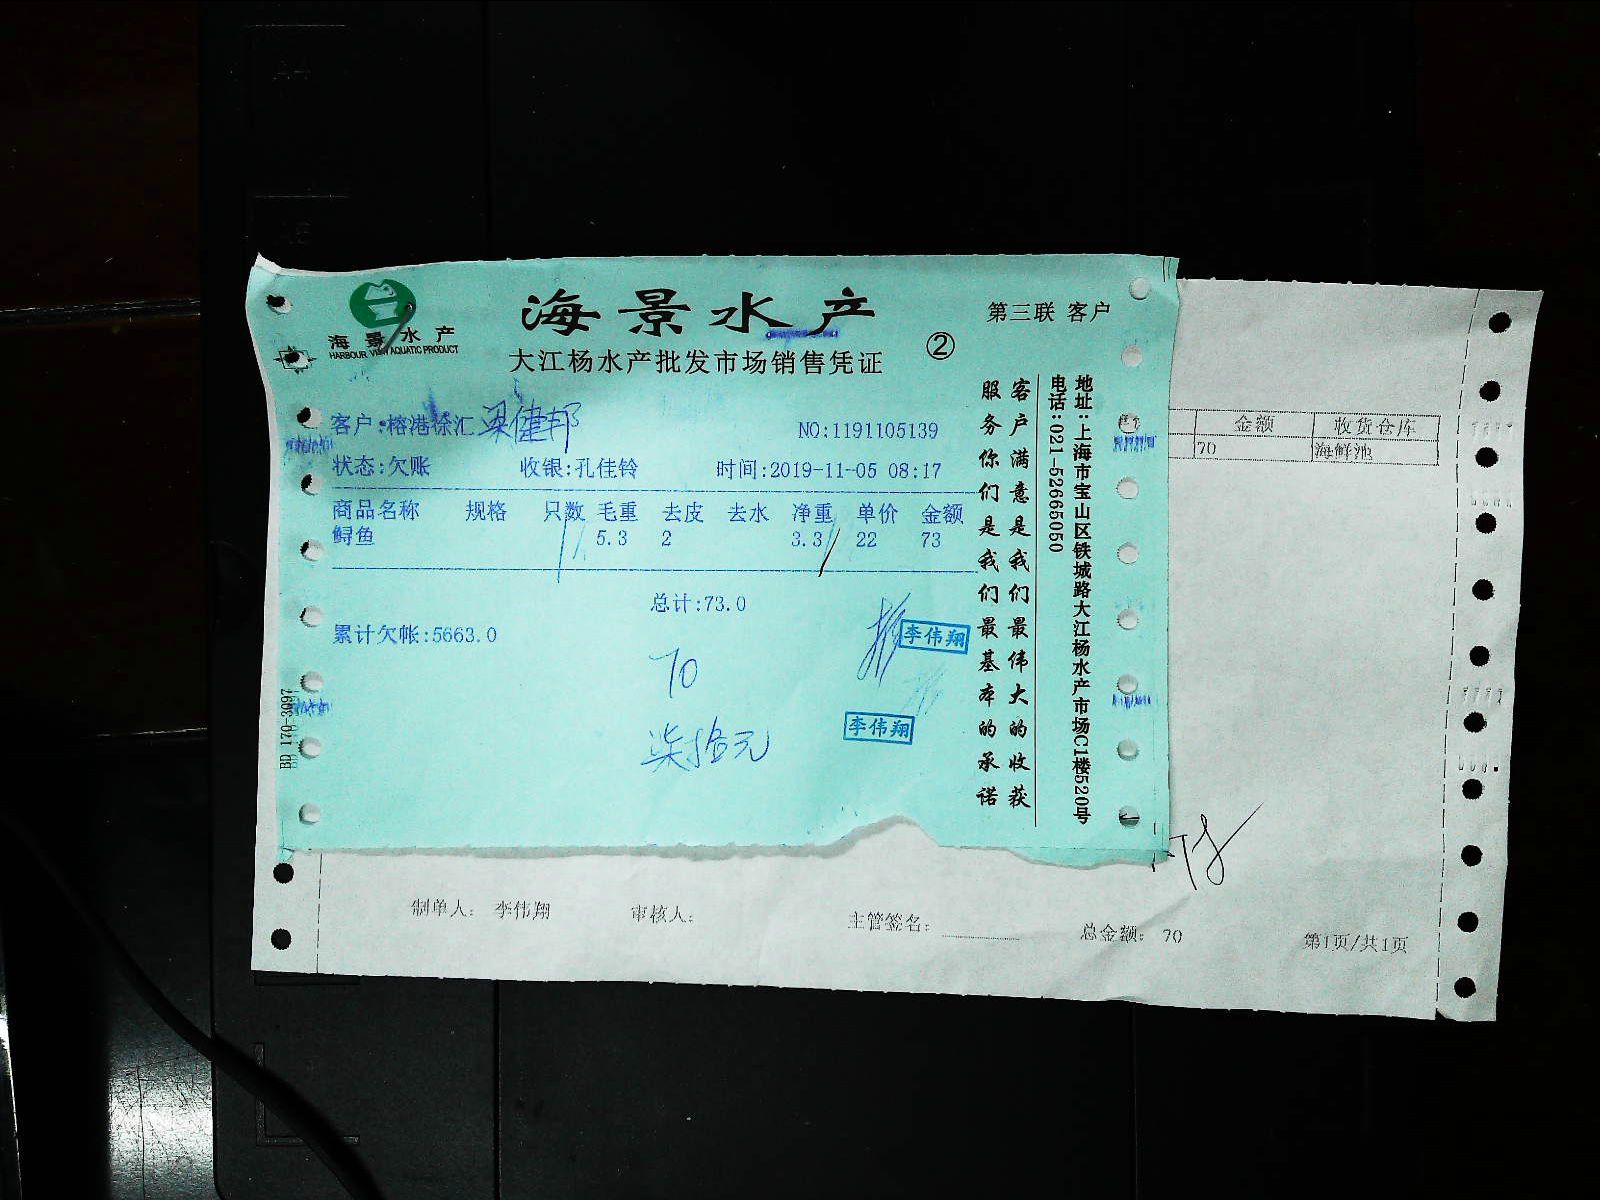 海景水产
HARBOUR VIEW AQUATIC PRODUCT
海景水产
第三联 客户
大江杨水产批发市场销售凭证
②
客户:榕港徐汇 梁健邦
NO:1191105139
状态:欠账 收银:孔佳铃 时间:2019-11-05 08:17
商品名称 规格 只数 毛重 去皮 去水 净重 单价 金额
鲟鱼 5.3 2 3.3 22 73
总计:73.0
累计欠帐:5663.0
70
柒拾元
李伟翔
李伟翔
客户满意是我们最伟大的收获
服务你们是我们最基本的承诺
地址:上海市宝山区铁城路大江杨水产市场C1楼520号
电话:021-52665050
BD 170-3097
金额 收货仓库
70 海鲜池
制单人: 李伟翔 审核人: 主管签名: 总金额: 70 第1页/共1页